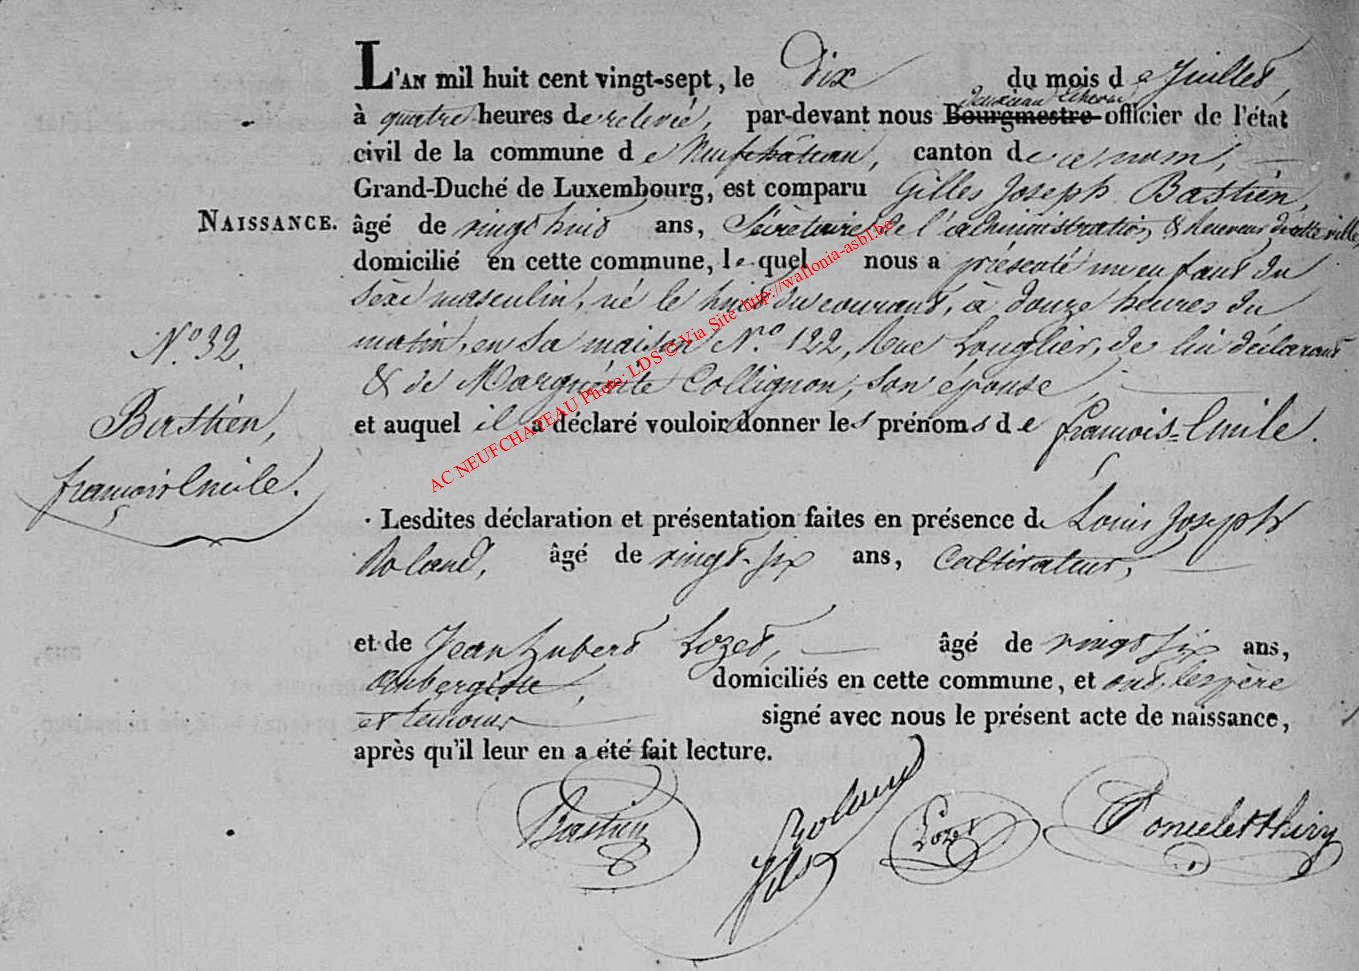 L'AN mil huit cent vingt-sept, le dix du mois de Juillet,
deuxieme Echevin
à quatre heures de relevée, par-devant nous Bourgmestre officier de l'état
civil de la commune de Neufchâteau, canton de ce nom,
Grand-Duché de Luxembourg, est comparu Gilles Joseph Bastien,
NAISSANCE. âgé de vingt huit ans, Sécrétaire de l'administration & receveur de cette ville,
domicilié en cette commune, le quel nous a présenté un enfant du
sèxe masculin, né le huit du courant, à douze heures du
matin, en sa maison N.º 122, Rue Longlier, de lui déclarant
& de Marguérite Collignon, son épouse,
et auquel il a déclaré vouloir donner les prénoms de françois-Emile.
N.º 32.
Bastien,
françois Emile.
Lesdites déclaration et présentation faites en présence de Louis Joseph
Roland, âgé de vingt-six ans, Cultivateur,
et de Jean hubert Lozet, âgé de vingt six ans,
aubergiste, domiciliés en cette commune, et ont, les père
et temoins signé avec nous le présent acte de naissance,
après qu'il leur en a été fait lecture.
Bastien
Roland
fils
Lozet
Poncelet thiry
AC NEUFCHATEAU Photo: LDS © Via Site http://wallonia-asbl.be